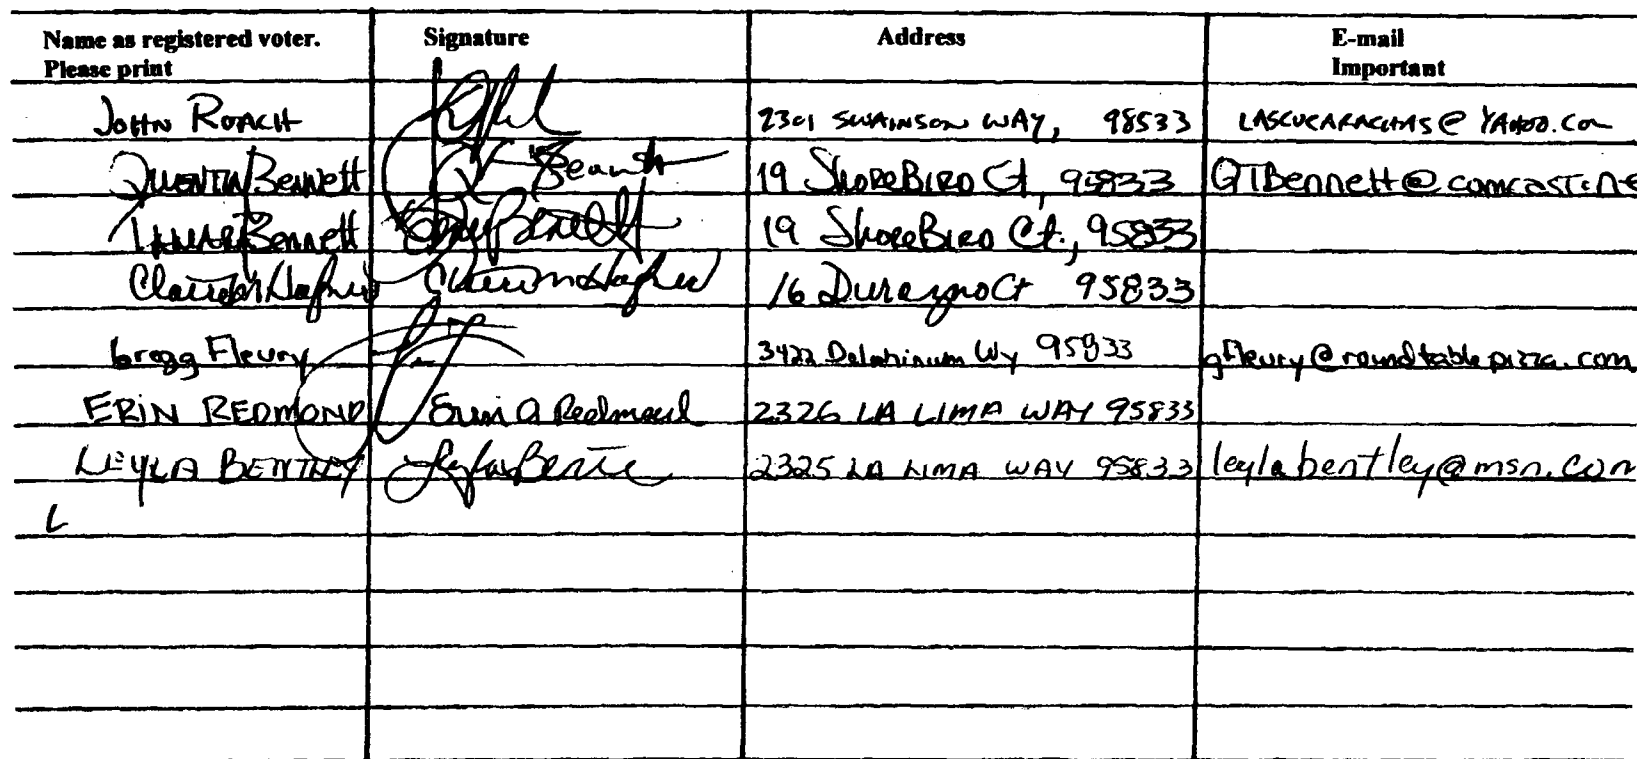 Name as registered voter. Signature Address E-mail
Please print Important
JOHN ROACH 2301 SWAINSON WAY, 98533 LASCUCARACHAS@YAHOO.COM
QUENTIN Bennett 19 SHOREBIRD Ct, 95833 QTBennett@comcast.ne
Bennett Bennett 19 SHOREBIRD Ct., 95833
16 Durazno Ct 95833
Gregg Fleury 3422 Delphinium Wy 95833 gfleury@roundtablepizza.com
ERIN REDMOND Erin A Redmond 2326 LA LIMA WAY 95833
LEYLA BENTLEY 2325 LA LIMA WAY 95833 leylabentley@msn.com
L